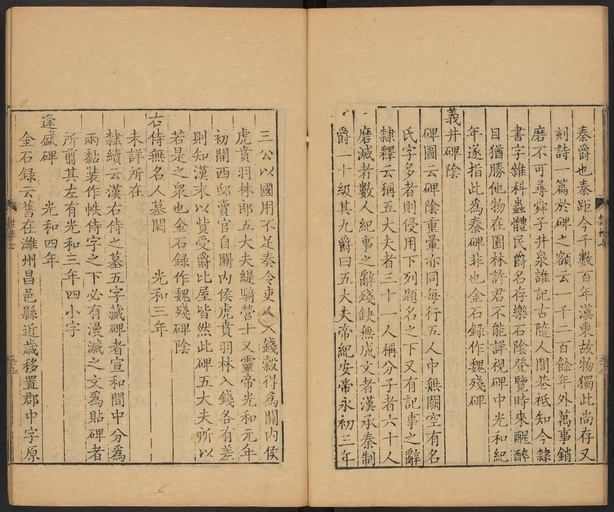 秦爵也秦距今千數百年漢東故物獨此尚存又
刻詩一篇於碑之額云一千二百餘年外萬事銷
磨不可尋舜子井泉誰記古隨人閭巷祗知今隸
書字雜科蟲體民爵名存樂石陰登覽時來醒醉
目猶勝他物在園林許君不能詳視碑中光和紀
年遂指此爲秦碑非也金石錄作魏殘碑
義井碑陰
碑圖云碑陰重暈亦同每行五人中無闕空有名
氏字多者則侵用下列題名之下又有記事之辭
隸釋云稱五大夫者三十一人稱分子者六十人
磨滅者數人紀事之辭殘缺無成文者漢承秦制
爵一十級其九爵曰五大夫帝紀安帝永初三年
三公以國用不足奏令吏人入錢穀得爲關內侯
虎賁羽林郎五大夫緹騎營士又靈帝光和元年
初開西邸賣官自關內侯虎賁羽林入錢各有差
則知漢末以貲受爵比屋皆然此碑五大夫所以
若是之衆也金石錄作魏殘碑陰
右侍無名人墓闕 光和三年
未詳所在
隸續云漢右侍之墓五字藏碑者宣和間中分爲
兩黏裝作帙侍字之下必有漫滅之文爲貼碑者
所翦其左有光和三年四小字
逢盛碑 光和四年
金石錄云舊在濰州昌邑縣近歲移置郡中字原